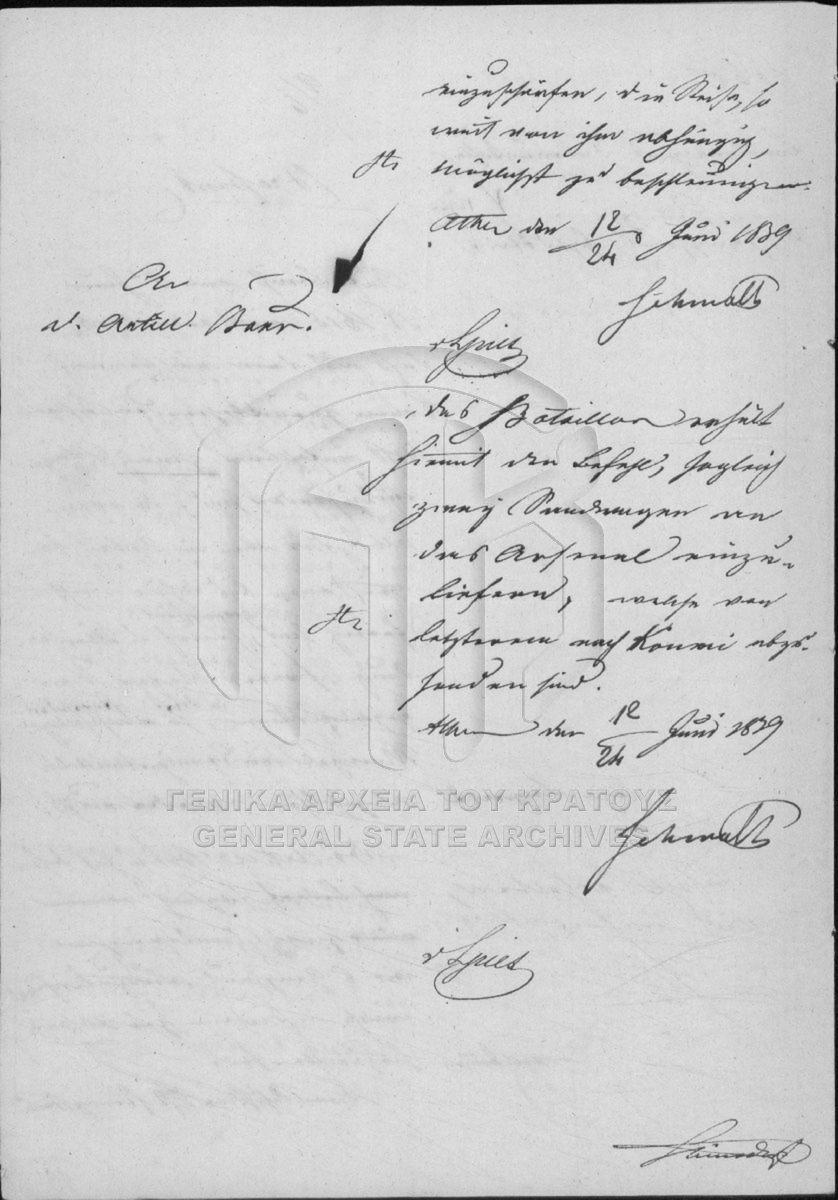 einzuschärfen, die Reise, so
weit von ihm abhängig,
möglichst zu beschleunigen.
Athen den 12/24 Juni 1839
Schmaltz
An
d. Artill. Baon.
v Spies
das Bataillon erhält
hiemit den Befehl, sogleich
zwey Bandwagen an
das Arsenal einzu-
liefern, welche von
letzterem nach Koumi abzu-
senden sind.
Athen den 12/24 Juni 1839
ΓΕΝΙΚΑ ΑΡΧΕΙΑ ΤΟΥ ΚΡΑΤΟΥΣ
GENERAL STATE ARCHIVES
Schmaltz
v Spies